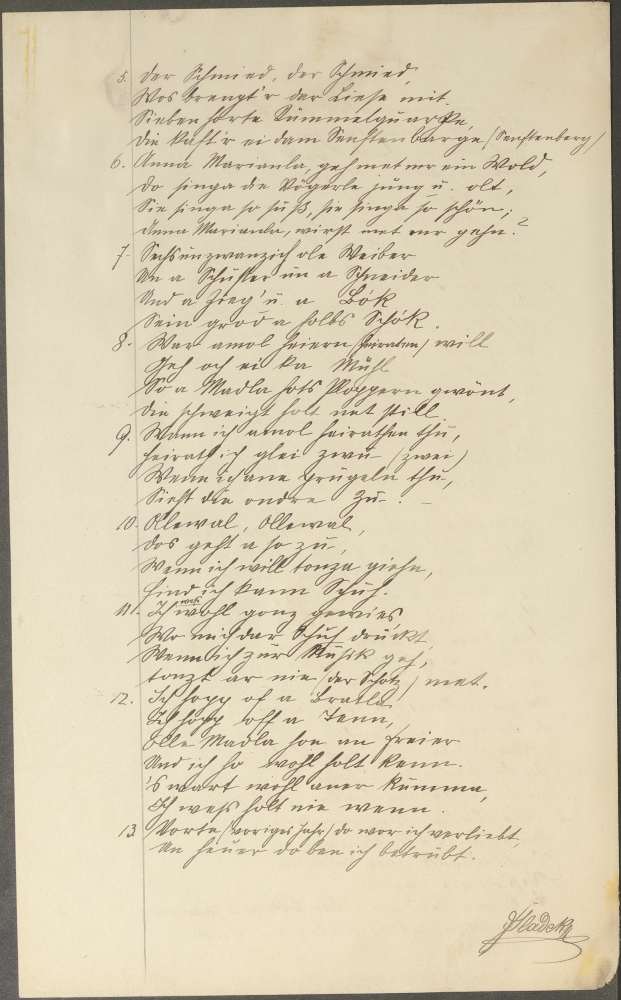 5. Der Schmied, der Schmied,
Wos brengt'r dar Liese mit,
Sieben sorte Rummelquarke,
Die käft'r ei dam Senftenbarge (Senftenberg)
6. Anna Marianla, geh met mer ein Wold,
Do singa die Vögerle jung u. olt,
Sie singa so süß, sie singa so schön;
Anna Marianla, wirst met mer gehn?
7. Sechsunzwanzich ole Weiber
Un a Schuster un a Schneider
Und a Zieg' u. a Bok
Sein groda holbs Schok.
8. War amol heiern (heiraten) will
Geh och ei ka Mühl
So a Madla hots Ploppern gwont,
Die schweigt holt net still.
9. Wenn ich amol heirathen thu,
Heirath ich glei zwu (zwei)
Wenn ich ane prügeln thu,
Sieht die ondre zu. —
10. Ollewal, Ollewal,
Dos geht a so zu,
Wenn ich will tonza giehn,
Find ich kann Schuh.
11. Ich weß wohl gonz gewies
Wo mich dar Schuh drückt,
Wenn ich zur Musik geh,
tonzt ar nie (der Schotz) met.
12. Ich hopp of a Bratla
Ich hopp off a Tenn,
Olle Madla hon an Freier
Und ich ho wohl holt kenn.
's wart wohl aner kumma,
Ich weß holt nie wenn.
13. Vorte (voriges Jahr) do wor ich verliebt,
An heuer do ben ich betrübt.
Hladeky